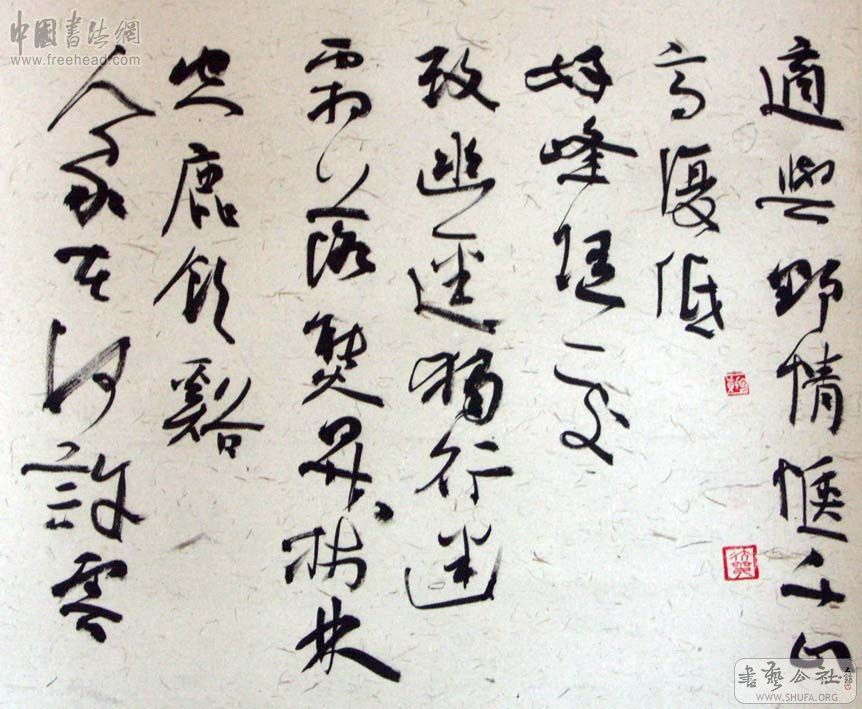 適與野情愜千山
高復低
好峰隨處
改幽徑獨行迷
霜落熊昇樹林
空鹿飲谿
人家在何許雲
中國書法網
www.freehead.com
書藝公社
WWW.SHUFA.ORG